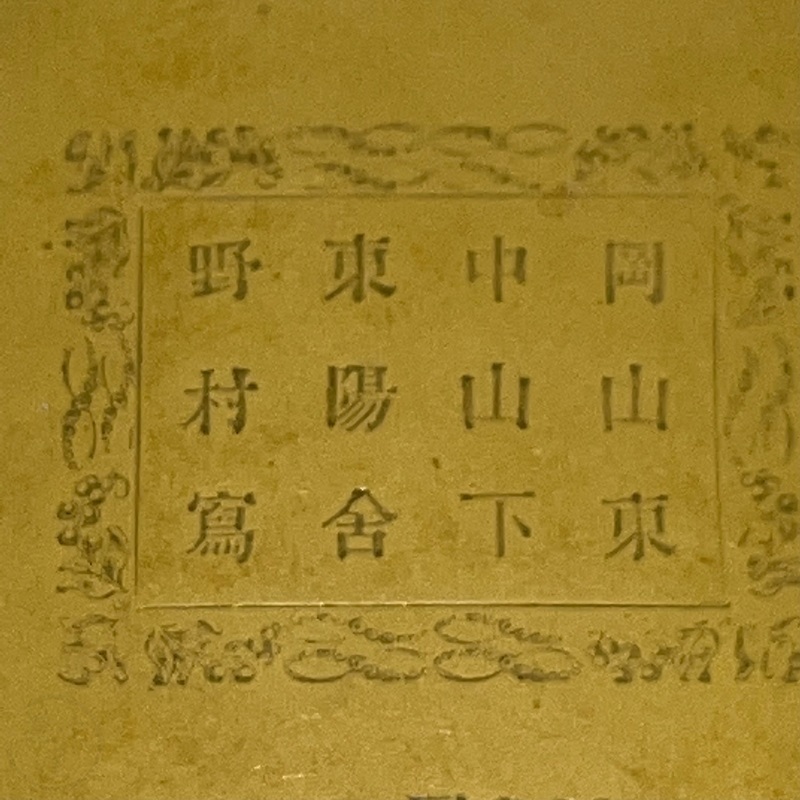 岡山東
中山下
東陽舎
野村寫